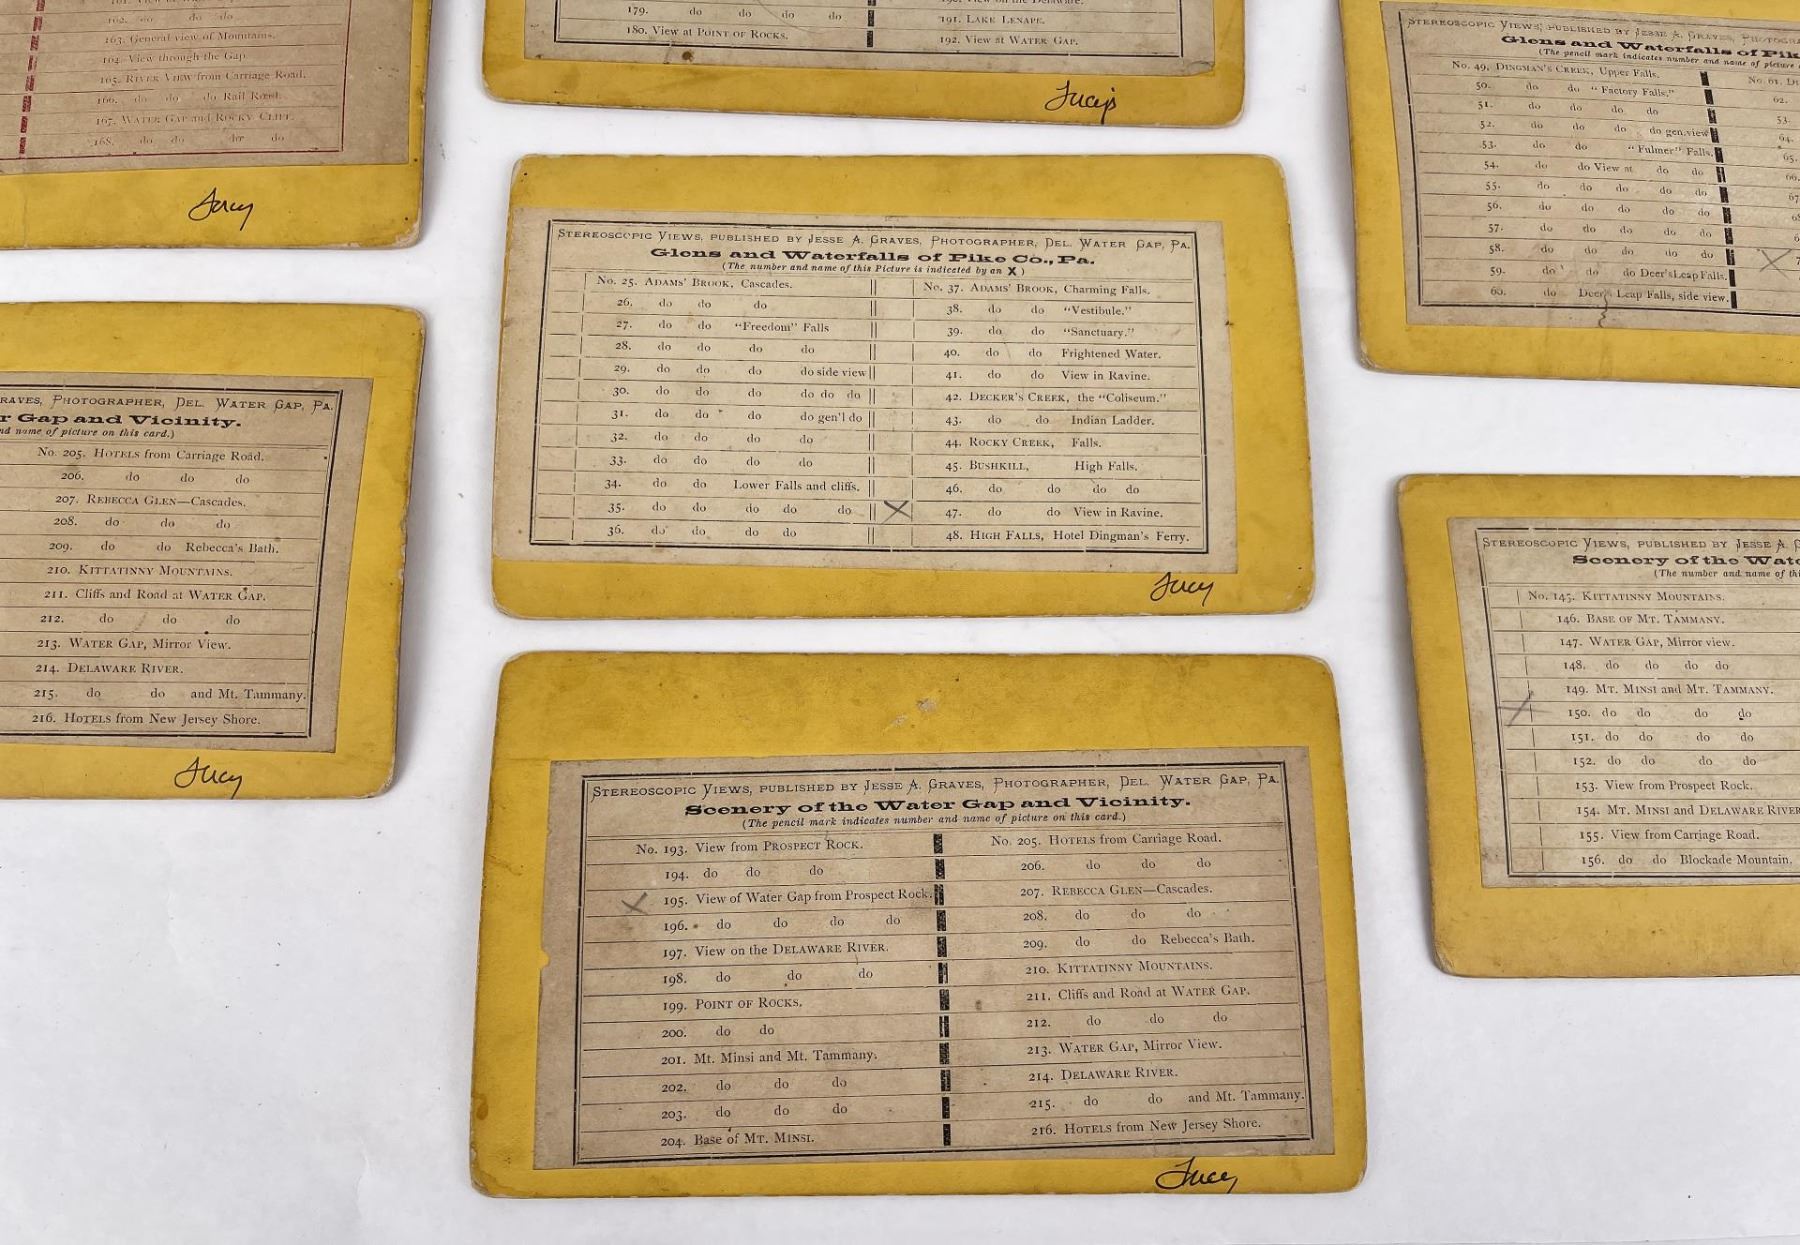 162. do do do
163. General view of Mountains.
164. View through the Gap.
165. RIVER VIEW from Carriage Road.
166. do do do Rail Road.
167. WATER GAP and ROCKY CLIFF.
168. do do do do
Lucy
179. do do do do
180. View at POINT OF ROCKS.
191. LAKE LENAPE.
192. View at WATER GAP.
Lucy
STEREOSCOPIC VIEWS, PUBLISHED BY JESSE A. GRAVES,
Glens and Waterfalls of
(The pencil mark indicates number and name of picture
No. 49. DINGMAN'S CREEK, Upper Falls.
50. do do "Factory Falls."
51. do do do do
52. do do do do gen. view
53. do do "Fulmer" Falls.
54. do do View at do do
55. do do do do do
56. do do do do do
57. do do do do do
58. do do do do do
59. do do do Deer's Leap Falls.
60. do Deer Leap Falls, side view.
No. 61.
62.
53.
64.
65.
66.
67
X
STEREOSCOPIC VIEWS, PUBLISHED BY JESSE A. GRAVES, PHOTOGRAPHER, DEL. WATER GAP, PA.
Glens and Waterfalls of Pike Co., Pa.
(The number and name of this Picture is indicated by an X)
No. 25. ADAMS' BROOK, Cascades.
26. do do do
27. do do "Freedom" Falls
28. do do do do
29. do do do do side view
30. do do do do do do
31. do do do do gen'l do
32. do do do do
33. do do do do
34. do do Lower Falls and cliffs.
35. do do do do do
36. do do do do
No. 37. ADAMS' BROOK, Charming Falls.
38. do do "Vestibule."
39. do do "Sanctuary."
40. do do Frightened Water.
41. do do View in Ravine.
42. DECKER'S CREEK, the "Coliseum."
43. do do Indian Ladder.
44. ROCKY CREEK, Falls.
45. BUSHKILL, High Falls.
46. do do do do
X 47. do do View in Ravine.
48. HIGH FALLS, Hotel Dingman's Ferry.
Lucy
GRAVES, PHOTOGRAPHER, DEL. WATER GAP, PA.
Gap and Vicinity.
name of picture on this card.)
No. 205. HOTELS from Carriage Road.
206. do do do
207. REBECCA GLEN—Cascades.
208. do do do
209. do do Rebecca's Bath.
210. KITTATINNY MOUNTAINS.
211. Cliffs and Road at WATER GAP.
212. do do do
213. WATER GAP, Mirror View.
214. DELAWARE RIVER.
215. do do and Mt. Tammany.
216. HOTELS from New Jersey Shore.
Lucy
STEREOSCOPIC VIEWS, PUBLISHED BY JESSE A.
Scenery of the
(The number and name of
No. 145. KITTATINNY MOUNTAINS.
146. BASE OF MT. TAMMANY.
147. WATER GAP, Mirror view.
148. do do do do
149. MT. MINSI and MT. TAMMANY.
X 150. do do do do
151. do do do do
152. do do do do
153. View from Prospect Rock.
154. MT. MINSI and DELAWARE RIVER
155. View from Carriage Road.
156. do do Blockade Mountain.
STEREOSCOPIC VIEWS, PUBLISHED BY JESSE A. GRAVES, PHOTOGRAPHER, DEL. WATER GAP, PA.
Scenery of the Water Gap and Vicinity.
(The pencil mark indicates number and name of picture on this card.)
No. 193. View from PROSPECT ROCK.
194. do do do
X 195. View of Water Gap from Prospect Rock.
196. do do do do
197. View on the DELAWARE RIVER.
198. do do do
199. POINT OF ROCKS.
200. do do
201. Mt. Minsi and Mt. Tammany.
202. do do do
203. do do do
204. Base of MT. MINSI.
No. 205. HOTELS from Carriage Road.
206. do do do
207. REBECCA GLEN—Cascades.
208. do do do
209. do do Rebecca's Bath.
210. KITTATINNY MOUNTAINS.
211. Cliffs and Road at WATER GAP.
212. do do do
213. WATER GAP, Mirror View.
214. DELAWARE RIVER.
215. do do and Mt. Tammany.
216. HOTELS from New Jersey Shore.
Lucy